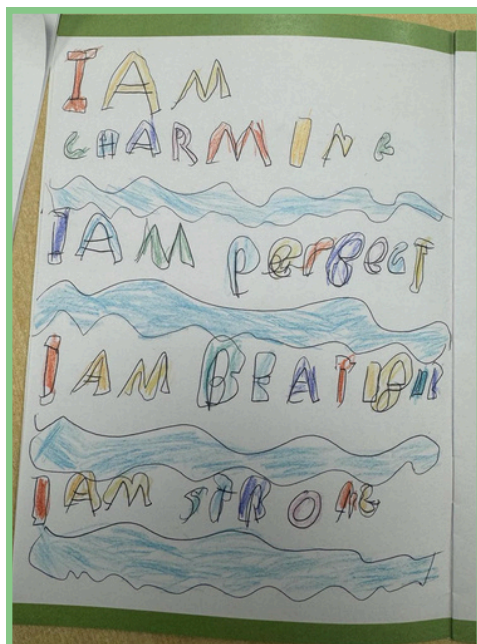 I AM
CHARMING
I AM perfect
I AM
I AM STRONG